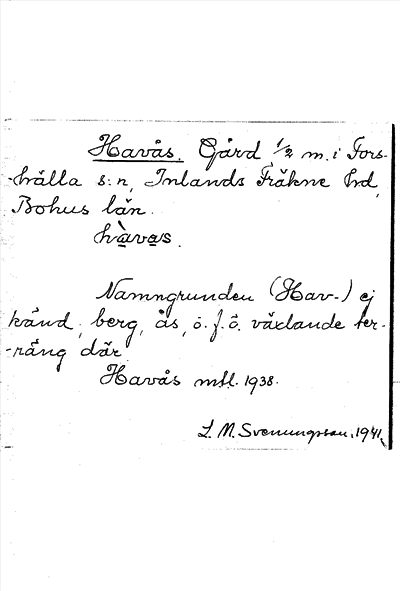 Havås. Gård 1/2 m. i Fors-
-hälla s:n, Inlands Fräkne hd,
Bohus län.
hàvas.
Namngrunden (Hav-) ej
känd; berg, ås, ö.f.ö. växlande ter-
-räng där.
Havås mtl. 1938.
L. M. Svenungsson. 1941.